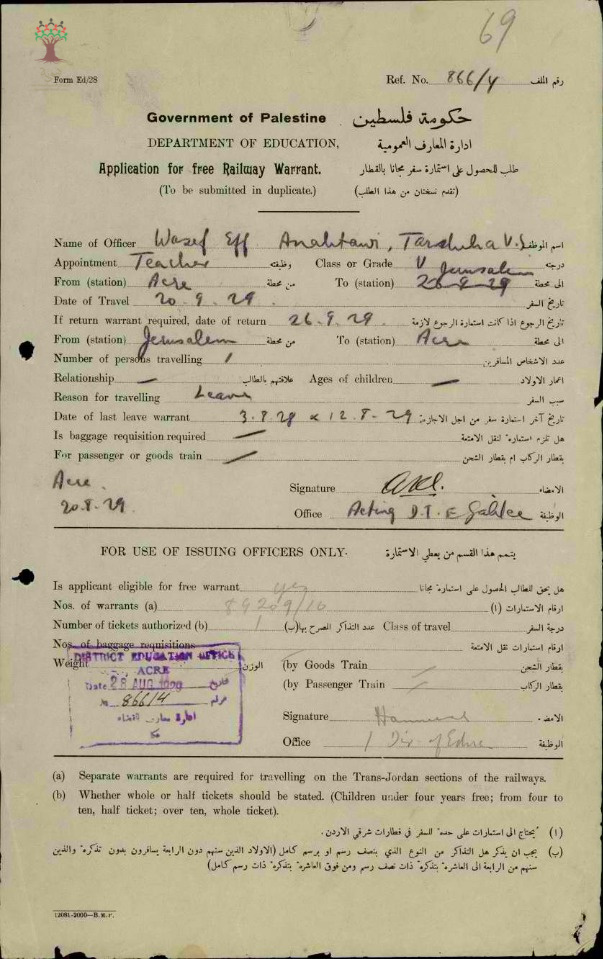 69
Form Ed/28
Ref. No. 866/4 رقم الملف
Government of Palestine حكومة فلسطين
DEPARTMENT OF EDUCATION, ادارة المعارف العمومية
Application for free Railway Warrant. طلب للحصول على استمارة سفر مجانا بالقطار
(To be submitted in duplicate.) (تقدم نسختان من هذا الطلب)
Name of Officer Wasef Eff Tarshiha V.S اسم الموظف
Appointment Teacher وظيفته Class or Grade V درجته
From (station) Acre من محطة To (station) Jerusalem الى محطة
Date of Travel 20.9.29. تاريخ السفر
If return warrant required, date of return 26.9.29. تاريخ الرجوع اذا كانت استمارة الرجوع لازمة
From (station) Jerusalem من محطة To (station) Acre الى محطة
Number of persons travelling 1 عدد الاشخاص المسافرين
Relationship — علاقتهم بالطالب Ages of children — اعمار الاولاد
Reason for travelling Leave سبب السفر
Date of last leave warrant 3.8.28 & 12.8.29 تاريخ آخر استمارة سفر من اجل الاجازة
Is baggage requisition required — هل تلزم استمارة لنقل الامتعة
For passenger or goods train — بقطار الركاب ام بقطار الشحن
Acre.
20.8.29
Signature الامضاء
Office Acting D.I.E Galilee الوظيفة
FOR USE OF ISSUING OFFICERS ONLY. يتمم هذا القسم من يعطي الاستمارة
Is applicant eligible for free warrant yes هل يحق للطالب الحصول على استمارة مجانا
Nos. of warrants (a) 89209/10 ارقام الاستمارات (١)
Number of tickets authorized (b) 1 عدد التذاكر المصرح بها (ب) Class of travel درجة السفر
Nos. of baggage requisitions ارقام استمارات نقل الامتعة
Weight الوزن (by Goods Train بقطار الشحن
(by Passenger Train بقطار الركاب
DISTRICT EDUCATION OFFICE
ACRE
Date 28 AUG 1929 تاريخ
№ 866/4
Signature الامضاء
Office الوظيفة
(a) Separate warrants are required for travelling on the Trans-Jordan sections of the railways.
(b) Whether whole or half tickets should be stated. (Children under four years free; from four to
ten, half ticket; over ten, whole ticket).
(١) يحتاج الى استمارات على حدة للسفر في قطارات شرقي الاردن.
(ب) يجب ان يذكر هل التذاكر من النوع الذي بنصف رسم او برسم كامل (الاولاد الذين سنهم دون الرابعة يسافرون بدون تذكرة والذين
سنهم من الرابعة الى العاشرة بتذكرة ذات نصف رسم ومن فوق العاشرة بتذكرة ذات رسم كامل)
12081-2000—B.M.P.